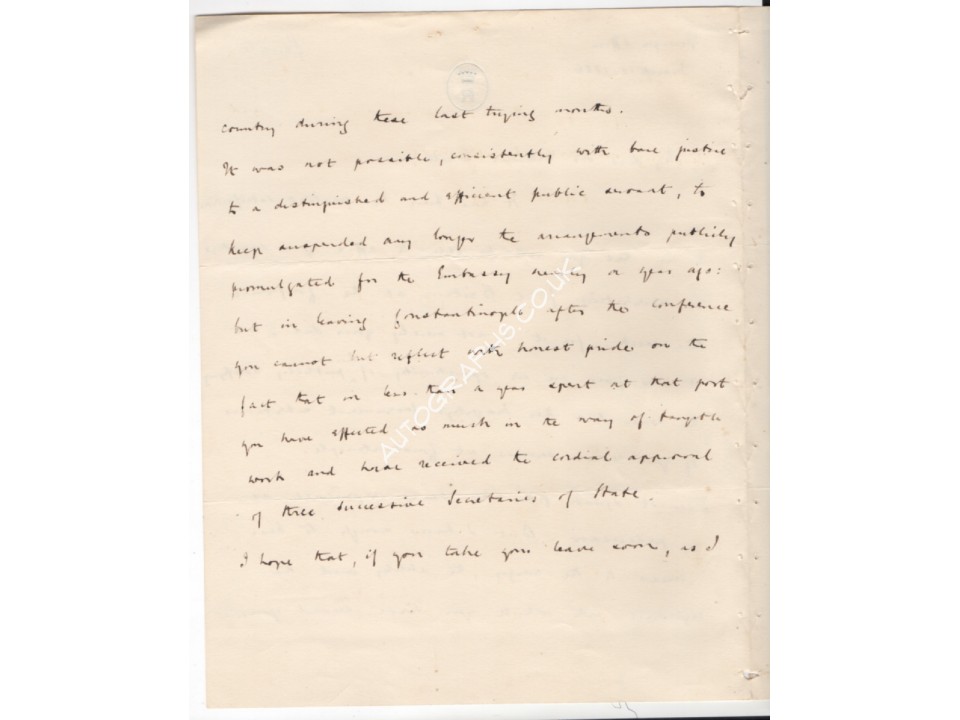 country during these last trying months.
It was not possible, consistently with bare justice
to a distinguished and efficient public servant, to
keep suspended any longer the arrangements publicly
promulgated for the Embassy nearly a year ago:
but in leaving Constantinople after the conference
you cannot but reflect with honest pride on the
fact that in less than a year spent at that post
you have effected so much in the way of tangible
work and have received the cordial approval
of three successive Secretaries of State.
I hope that, if you take your leave soon, as I
AUTOGRAPHS.CO.UK